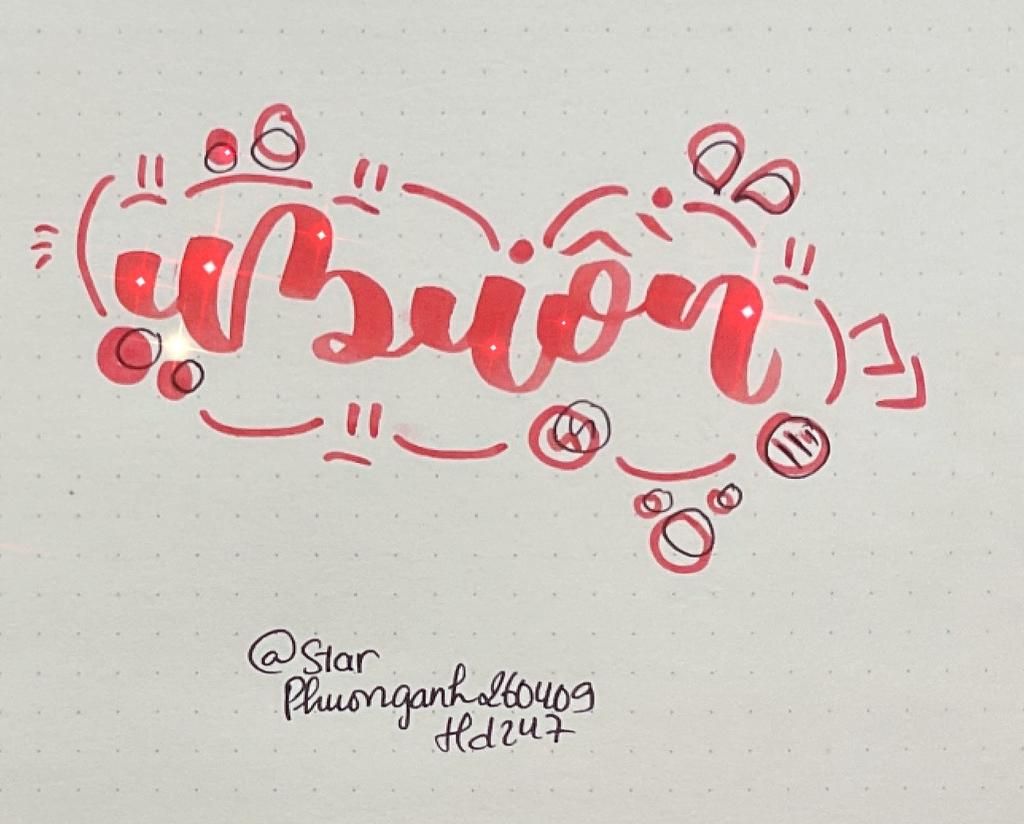 Buôn
@Star
Phuonganh260409
Hd247